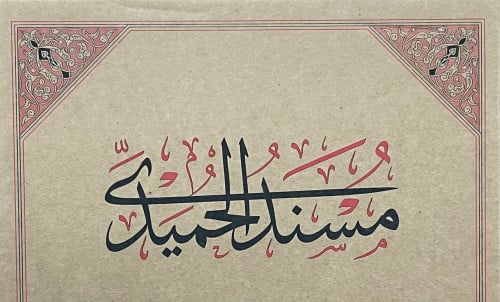 مُسْنَدُ الحُمَيْدِيّ